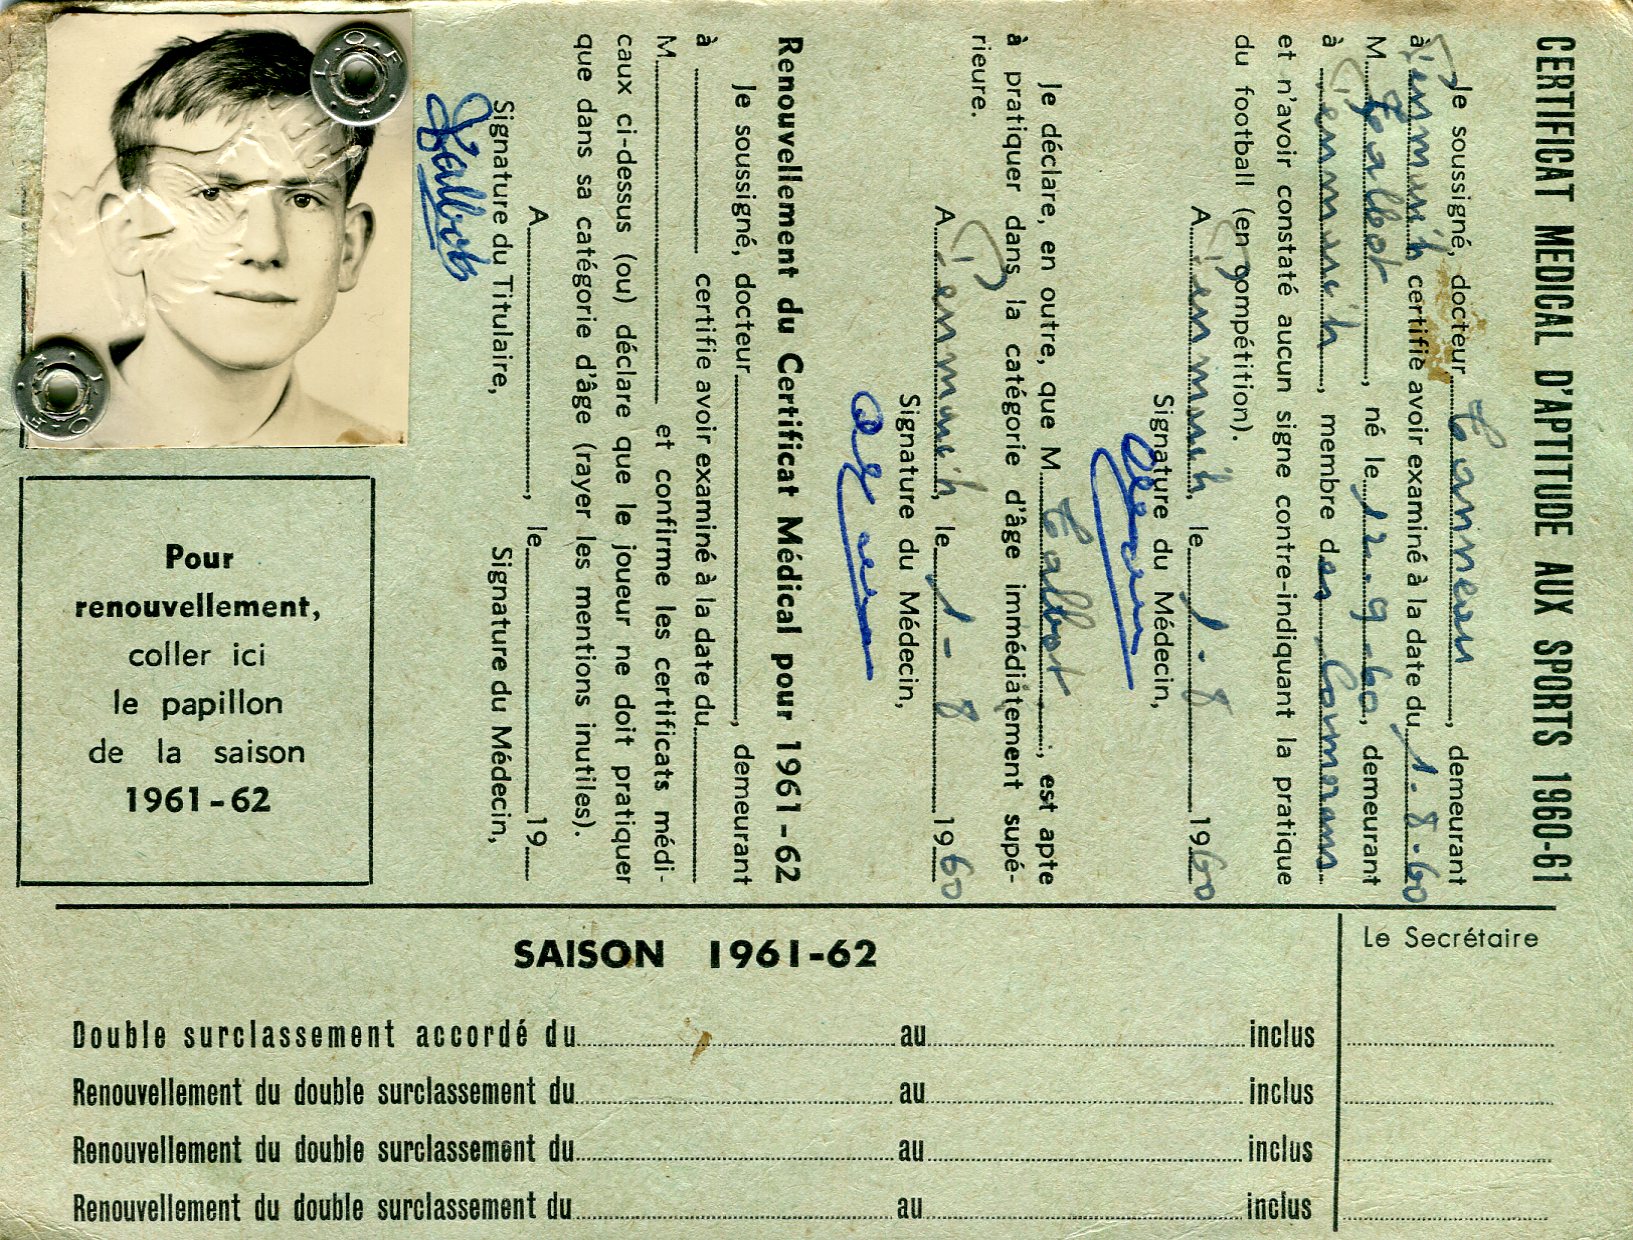 CERTIFICAT MEDICAL D'APTITUDE AUX SPORTS 1960-61
Je soussigné, docteur, demeurant
à Penmarc'h certifie avoir examiné à la date du 1.8.60
M. Talbot, né le 12-9-60, demeurant
à Penmarc'h, membre des Cormorans
et n'avoir constaté aucun signe contre-indiquant la pratique
du football (en compétition).
A Penmarc'h, le 1.8 1960
Signature du Médecin,
Je déclare, en outre, que M. Talbot, est apte
à pratiquer dans la catégorie d'âge immédiatement supé-
rieure.
A Penmarc'h, le 1-8 1960
Signature du Médecin,
Renouvellement du Certificat Médical pour 1961-62
Je soussigné, docteur, demeurant
à certifie avoir examiné à la date du
M. et confirme les certificats médi-
caux ci-dessus (ou) déclare que le joueur ne doit pratiquer
que dans sa catégorie d'âge (rayer les mentions inutiles).
A, le 19
Signature du Titulaire, Signature du Médecin,
Talbot
Pour
renouvellement,
coller ici
le papillon
de la saison
1961-62
SAISON 1961-62
Le Secrétaire
Double surclassement accordé du au inclus
Renouvellement du double surclassement du au inclus
Renouvellement du double surclassement du au inclus
Renouvellement du double surclassement du au inclus